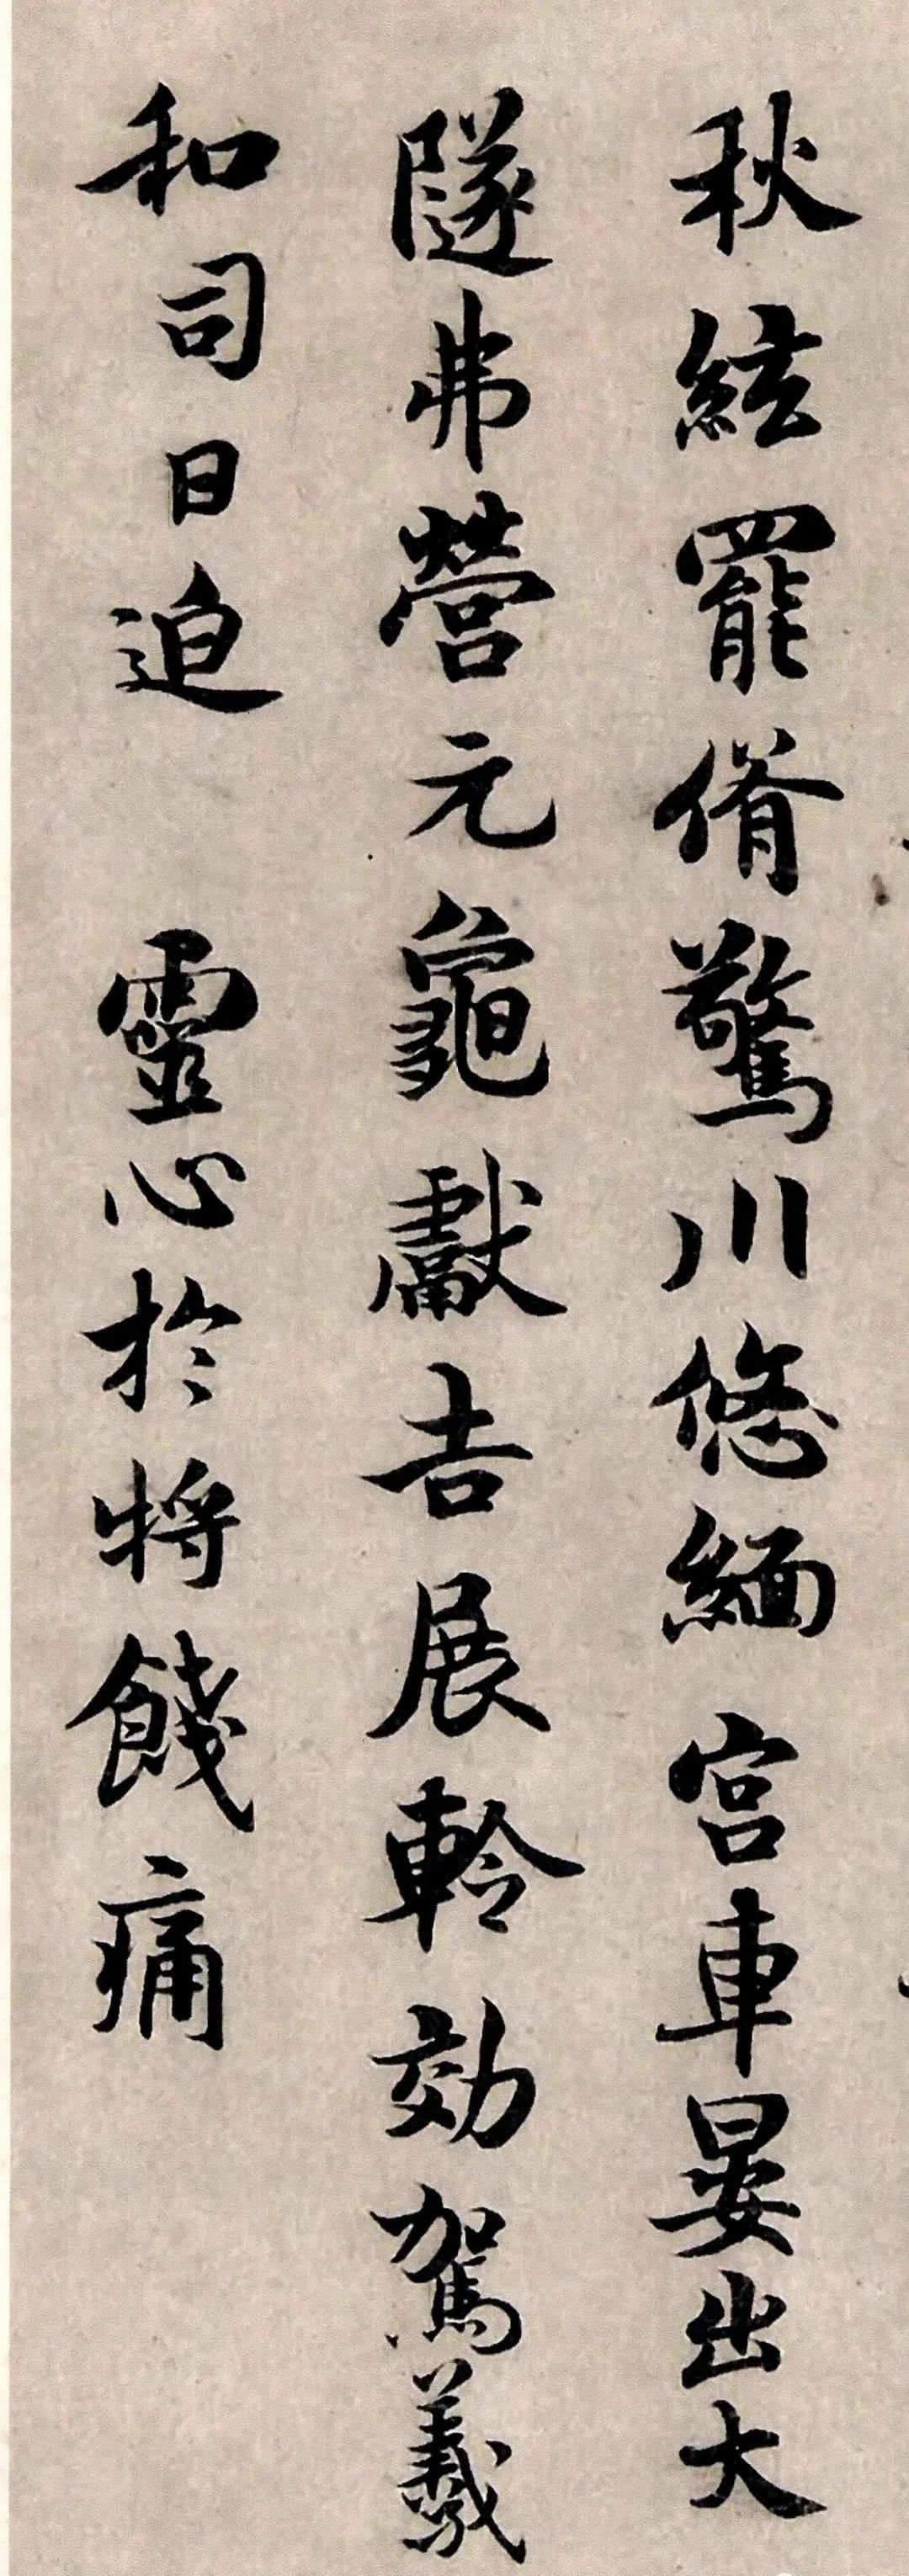 秋絃罷脩驚川悠緬宮車晏出大
隧弗營元龜獻吉展軨効駕羲
和司日迫靈心於將餞痛